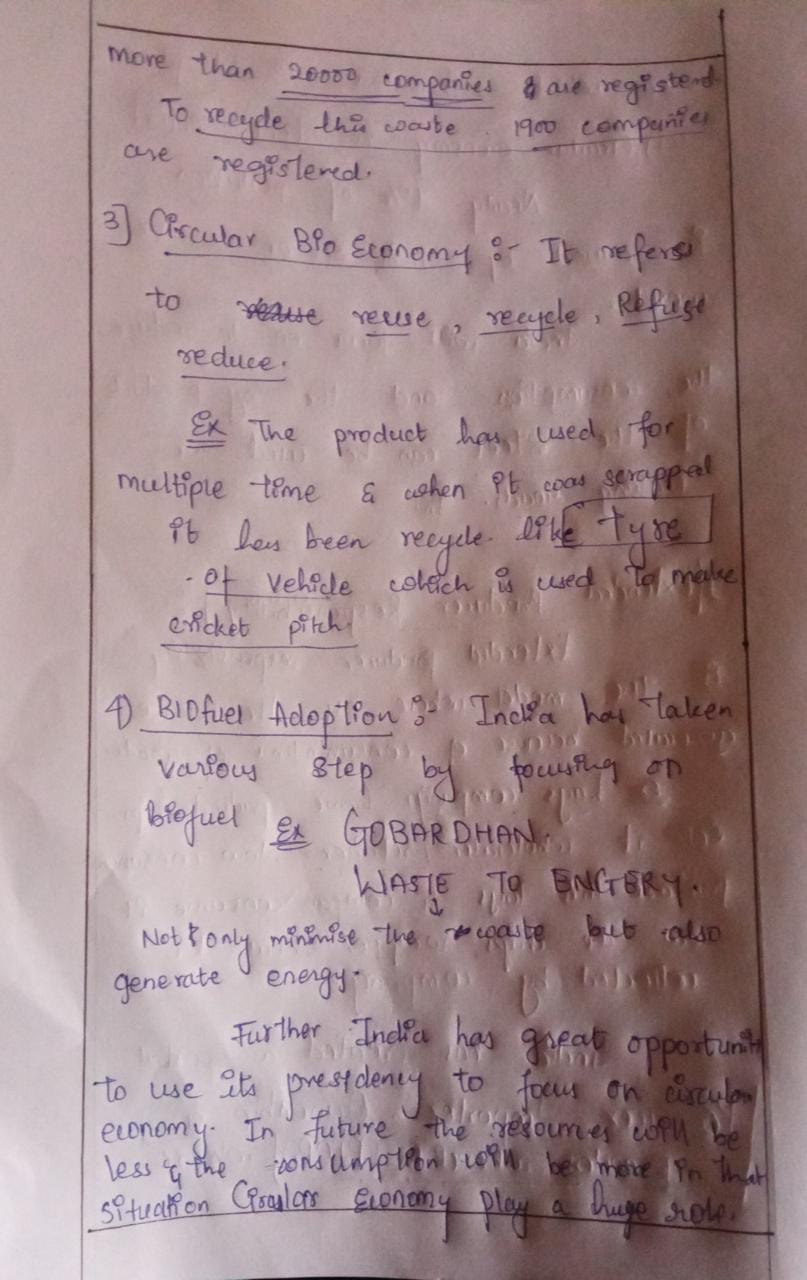 more than 20000 companies & are registerd
To recycle this waste. 1900 companies
are registered.
3] Circular Bio Economy :- It refers
to reuse reuse, recycle, Refuse
reduce.
Ex The product has used for
multiple time & when it was scrapped
it has been recycle. like tyre
of vehicle which is used to make
cricket pitch.
4) BIOfuel Adoption :- India has taken
various step by focusing on
biofuel Ex GOBARDHAN.
WASTE TO ENGERY.
↓
Not only minimise the waste but also
generate energy.
Further India has great opportunity
to use its presidency to focus on circular
economy. In future the resources will be
less & the consumption will be more in that
situation Circular Economy play a huge role.